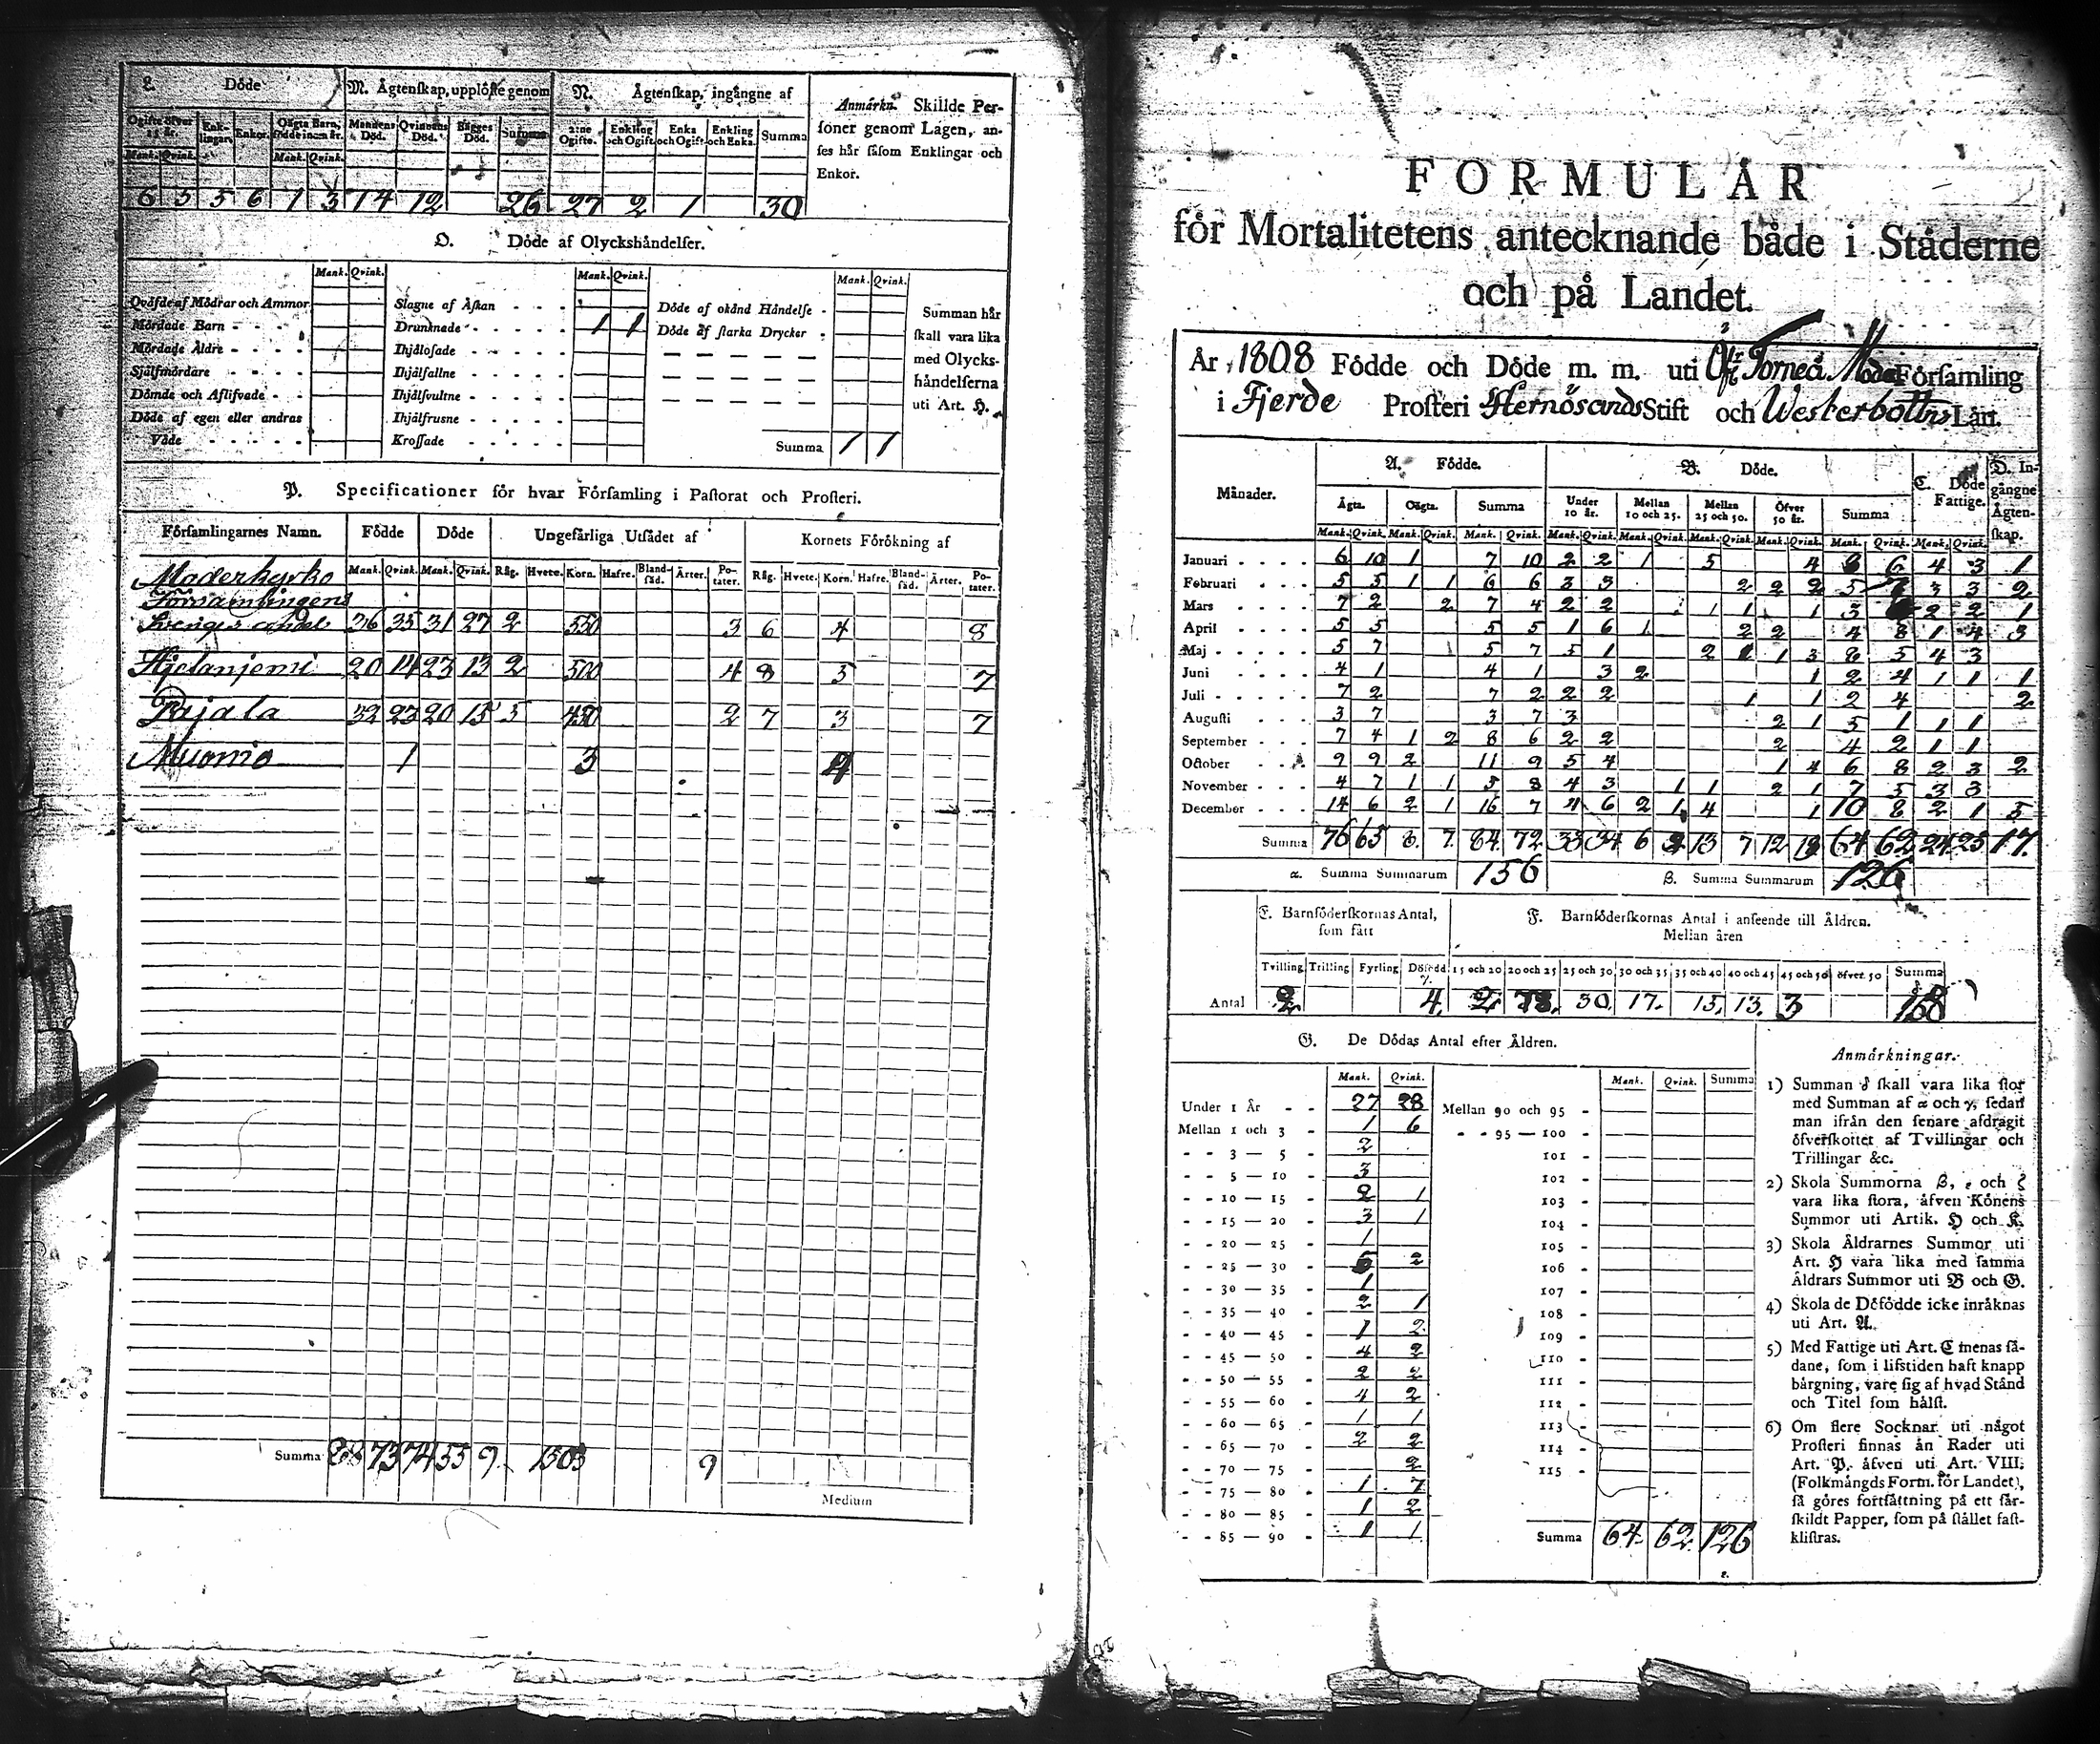 L. Döde
M. Ägtenskap, upplöste genom
N. Ägtenskap, ingångne af
Anmärkn. Skillde Personer genom Lagen, anses här såsom Enklingar och Enkor.
Ogifte öfver 15 år. Enklingar. Enkor. Oägta Barn, födde inom år. Mandens Död. Qvinnans Död. Bägges Död. Summa 2:ne Ogifte. Enkling och Ogift. Enka och Ogift. Enkling och Enka. Summa
Mank. Qvink. Mank. Qvink.
6 5 5 6 1 3 14 12 26 27 2 1 30
O. Döde af Olyckshändelser.
Mank. Qvink. Mank. Qvink. Mank. Qvink.
Qväfde af Mödrar och Ammor Slagne af Åskan Döde af okänd Händelse
Mördade Barn Drunknade 1 1 Döde af starka Drycker
Mördade Äldre Ihjälosade
Självmördare Ihjälfallne
Dömde och Aflifvade Ihjälsvultne
Döde af egen eller andras Våde Ihjälfrusne
Krossade Summa 1 1
Summan här
skall vara lika
med Olycks-
händelserna
uti Art. H.
P. Specificationer för hvar Församling i Pastorat och Prosteri.
Församlingarnes Namn. Födde Döde Ungefärliga Utsädet af Kornets Förökning af
Mank. Qvink. Mank. Qvink. Råg. Hvete. Korn. Hafre. Blandsäd. Ärter. Potater. Råg. Hvete. Korn. Hafre. Blandsäd. Ärter. Potater.
Moderkyrko
Församlingens
36 35 31 27 2 550 3 6 4 8
Hjetanjemi 20 14 23 13 2 500 4 8 5 7
Pajala 32 23 20 15 5 450 2 7 3 7
Muonio 1 3 4
Summa 88 73 74 55 9 1503 9
Medium
FORMULÄR
för Mortalitetens antecknande både i Städerne
och på Landet.
År 1808 Födde och Döde m. m. uti Öfr Torneå Moder Församling
i Fjerde Prosteri Hernösands Stift och Westerbottns Län.
Månader. A. Födde. B. Döde. C. Döde Fattige. D. Ingångne Ägtenskap.
Ägta. Oägta. Summa Under 10 år. Mellan 10 och 25. Mellan 25 och 50. Öfver 50 år. Summa
Mank. Qvink. Mank. Qvink. Mank. Qvink. Mank. Qvink. Mank. Qvink. Mank. Qvink. Mank. Qvink. Mank. Qvink. Mank. Qvink.
Januari 6 10 1 7 10 2 2 1 5 4 8 6 4 3 1
Februari 5 5 1 1 6 6 3 3 2 2 2 5 7 3 3 2
Mars 7 2 2 7 4 2 2 1 1 1 3 2 2 1
April 5 5 5 5 1 6 1 2 2 4 8 1 4 3
Maj 5 7 5 7 5 1 2 1 1 3 8 5 4 3
Juni 4 1 4 1 3 2 1 2 4 1 1 1
Juli 7 2 7 2 2 2 1 1 2 4 2
Augusti 3 7 3 7 3 2 1 5 1 1 1
September 7 4 1 2 8 6 2 2 2 4 2 1 1
October 9 9 2 11 9 5 4 1 4 6 8 2 3 2
November 4 7 1 1 5 8 4 3 1 1 2 1 7 5 3 3
December 14 6 2 1 16 7 4 6 2 1 4 1 10 8 2 1 5
Summa 76 65 8. 7. 84. 72 33 34 6 2 13 7 12 19 64 62 24 25 17.
α. Summa Summarum 156 β. Summa Summarum 126
E. Barnföderskornas Antal, som fått
F. Barnföderskornas Antal i anseende till Åldren.
Mellan åren
Tvilling Trilling Fyrling Dödfödd γ. 15 och 20 20 och 25 25 och 30 30 och 35 35 och 40 40 och 45 45 och 50 öfver 50 Summa
Antal 2 4. 2. 78. 30. 17. 15. 13. 3 158
G. De Dödas Antal efter Åldren.
Mank. Qvink. Mank. Qvink. Summa
Under 1 År 27 28 Mellan 90 och 95
Mellan 1 och 3 1 6 95 — 100
3 — 5 2 101
5 — 10 3 102
10 — 15 2 1 103
15 — 20 3 1 104
20 — 25 1 105
25 — 30 5 2 106
30 — 35 1 107
35 — 40 2 1 108
40 — 45 1 2 109
45 — 50 4 2 110
50 — 55 2 2 111
55 — 60 4 2 112
60 — 65 1 1 113
65 — 70 2 2 114
70 — 75 2 115
75 — 80 1 7
80 — 85 1 2
85 — 90 1 1 Summa 64. 62. 126
Anmärkningar.
1) Summan δ skall vara lika stor
med Summan af α och γ, sedan
man ifrån den senare afdragit
öfverskottet af Tvillingar och
Trillingar &c.
2) Skola Summorna β, ε och ζ
vara lika stora, äfven Könens
Summor uti Artik. H och K.
3) Skola Åldrarnes Summor uti
Art. H vara lika med samma
Åldrars Summor uti B och G.
4) Skola de Döfödde icke inräknas
uti Art. A.
5) Med Fattige uti Art. C menas så-
dane, som i lifstiden haft knapp
bärgning, vare sig af hvad Stånd
och Titel som hälst.
6) Om flere Socknar uti något
Prosteri finnas än Rader uti
Art. P. äfven uti Art. VIII.
(Folkmängds Form. för Landet),
så göres fortsättning på ett sär-
skildt Papper, som på stället fast-
klistras.